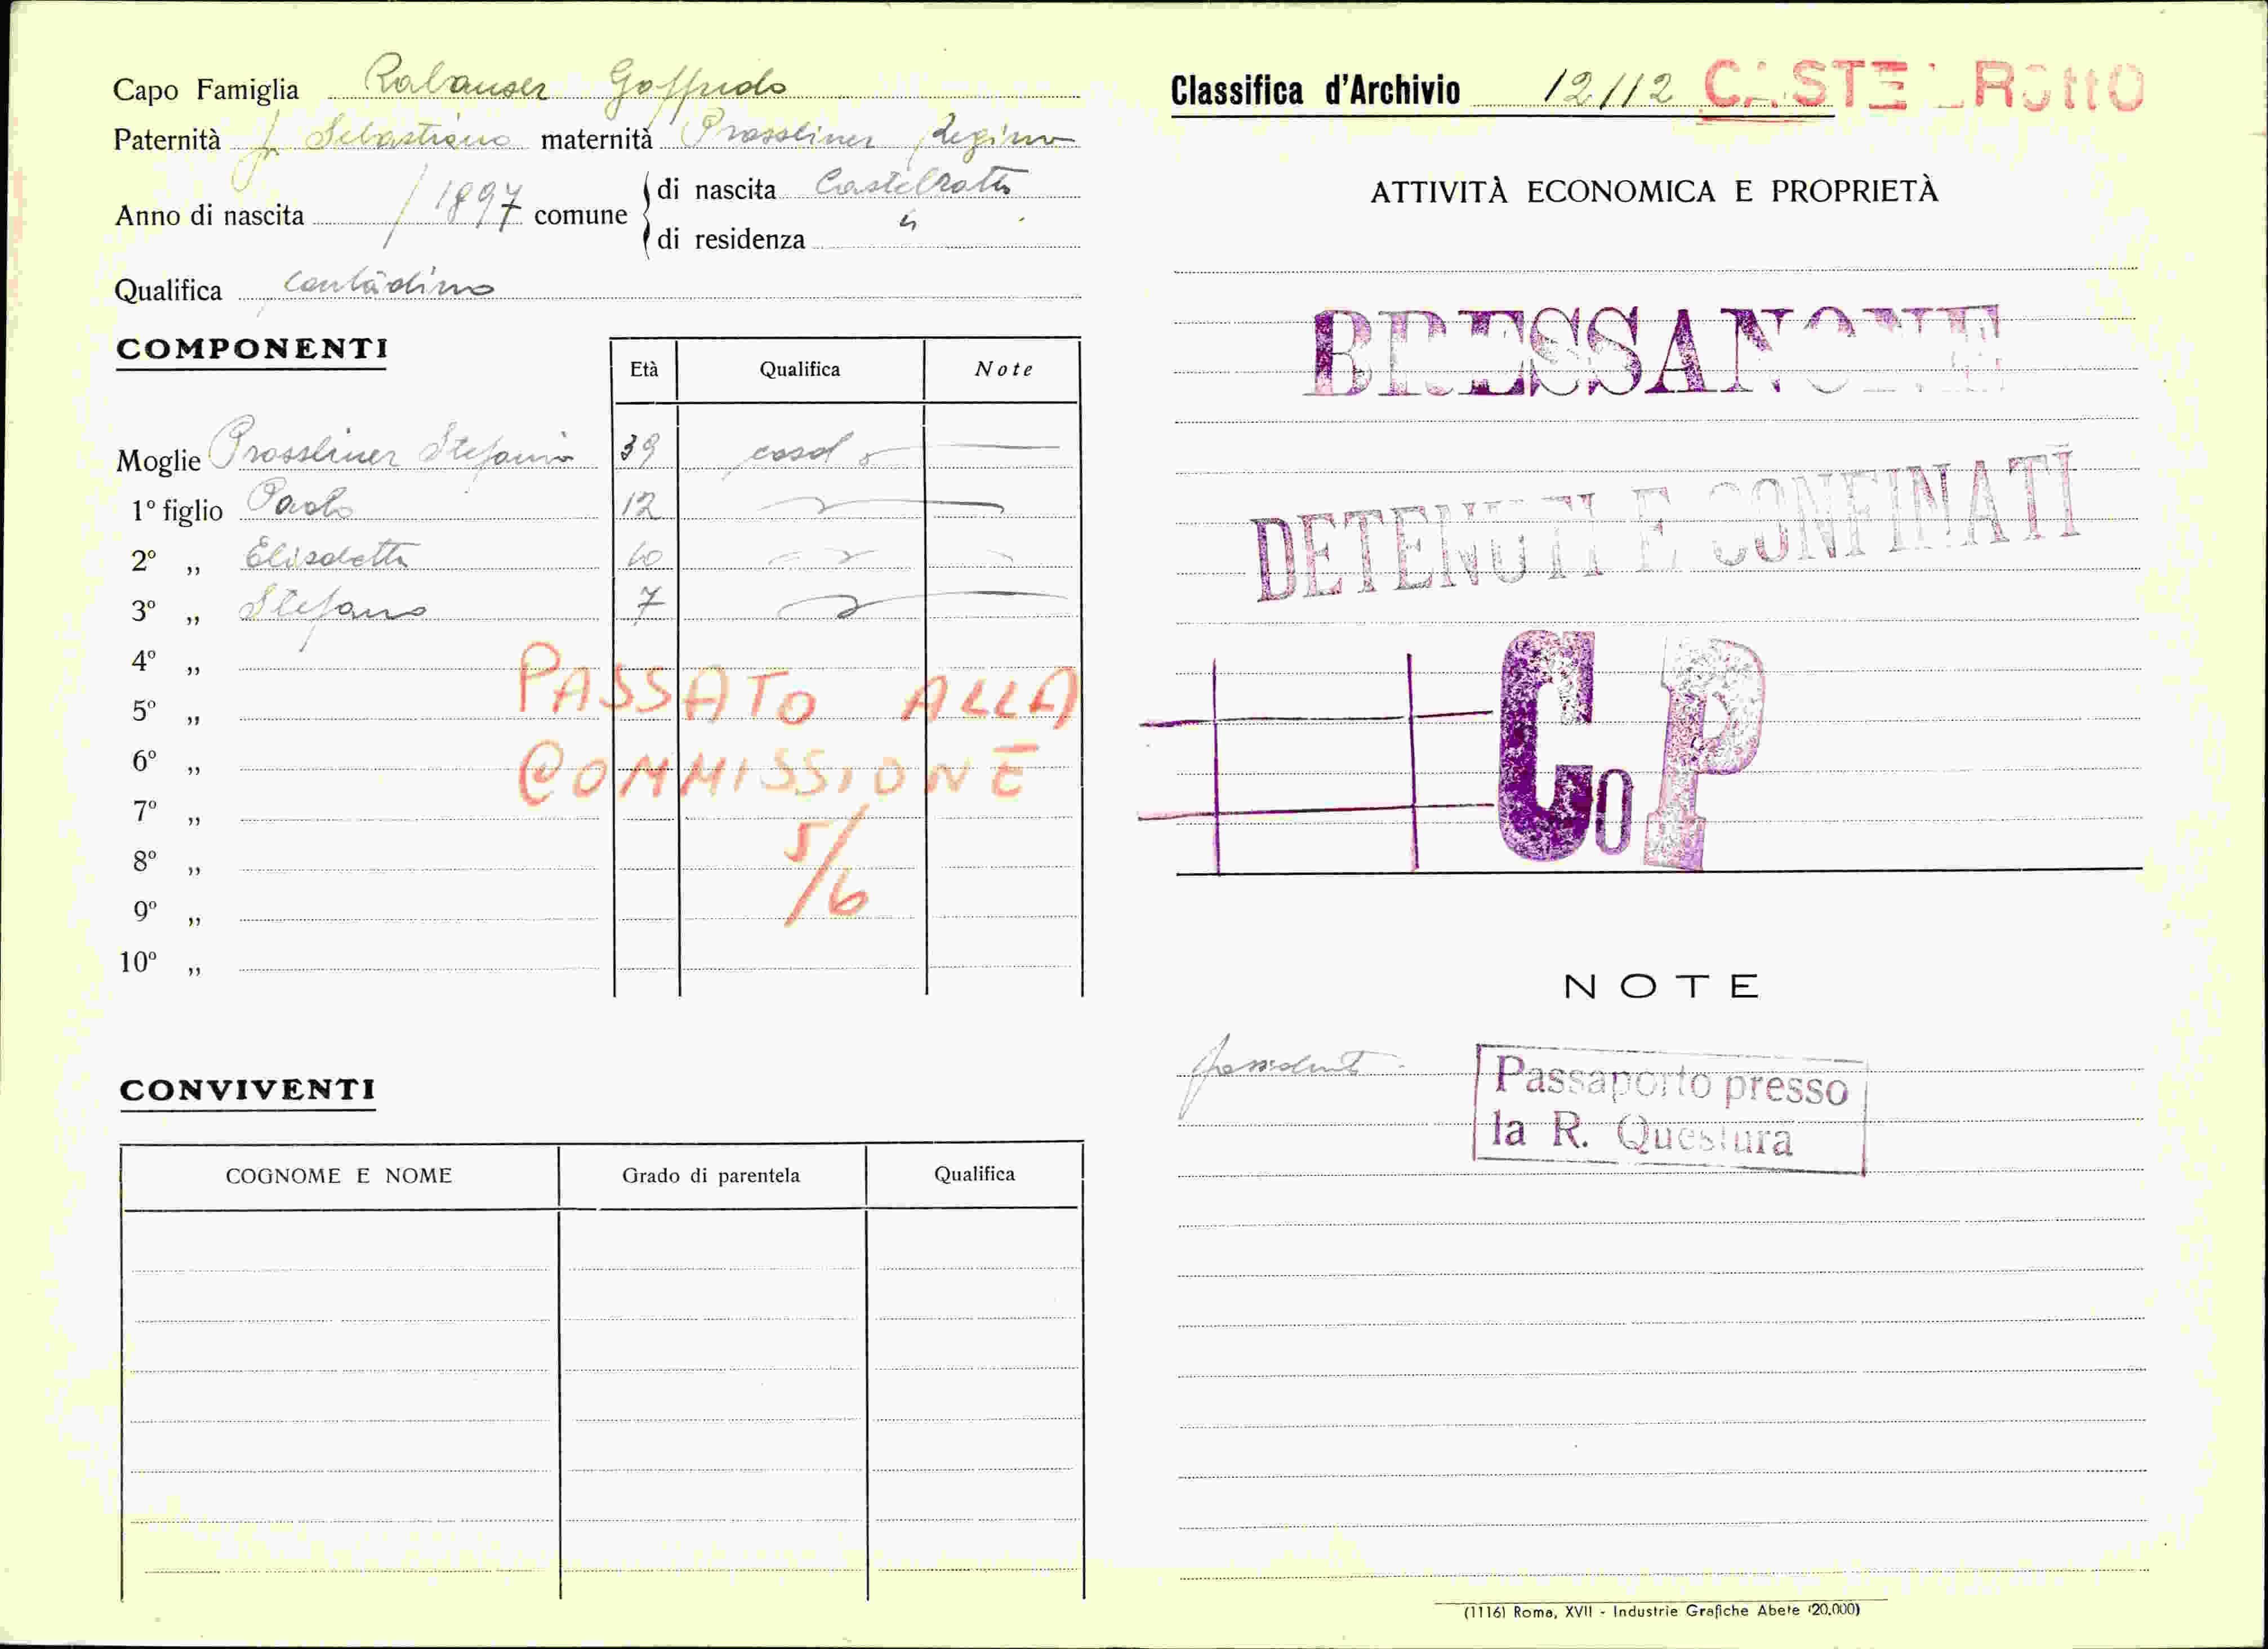 Capo Famiglia Rabanser Goffredo
Paternità Sebastiano maternità Prossliner Regina
Anno di nascita 1897 comune di nascita Castelrotto
di residenza "
Qualifica contadino
COMPONENTI
Età Qualifica Note
Moglie Prossliner Stefania 39 casal
1º figlio Paolo 12
2º „ Elisabetta 10
3º „ Stefano 7
4º „
5º „
PASSATO ALLA
6º „
COMMISSIONE
7º „
8º „
5/6
9º „
10º „
CONVIVENTI
COGNOME E NOME Grado di parentela Qualifica
Classifica d'Archivio 12/12 CASTELROttO
ATTIVITÀ ECONOMICA E PROPRIETÀ
BRESSANONE
DETENUTI E CONFINATI
CoP
NOTE
possidente
Passaporto presso
la R. Questura
(1116) Roma, XVII - Industrie Grafiche Abete (20.000)